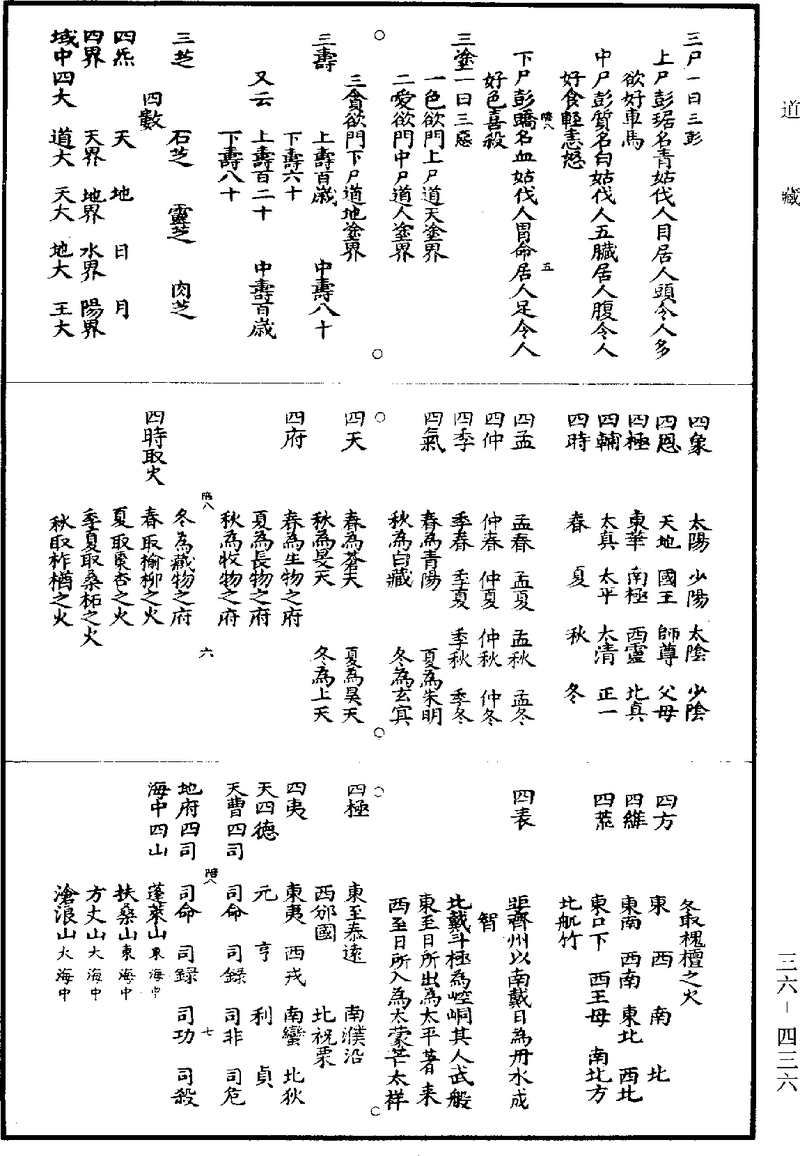 道藏
三尸一曰三彭
上尸彭琚名青姑伐人目居人頭令人多
欲好車馬
中尸彭質名白姑伐人五臟居人腹令人
好食輕恚怒
下尸彭蹻名血姑伐人胃命居人足令人
好色喜殺
三塗一曰三惡
一色欲門上尸道天塗界
二愛欲門中尸道人塗界
三貪欲門下尸道地塗界
三壽 上壽百歲 中壽八十
下壽六十
又云 上壽百二十 中壽百歲
下壽八十
三芝 石芝 靈芝 肉芝
四數
四炁 天 地 日 月
四界 天界 地界 水界 陽界
域中四大 道大 天大 地大 王大
四象 太陽 少陽 太陰 少陰
四恩 天地 國王 師尊 父母
四極 東華 南極 西靈 北真
四輔 太真 太平 太清 正一
四時 春 夏 秋 冬
四孟 孟春 孟夏 孟秋 孟冬
四仲 仲春 仲夏 仲秋 仲冬
四季 季春 季夏 季秋 季冬
四氣 春為青陽 夏為朱明
秋為白藏 冬為玄冥
四天 春為蒼天 夏為昊天
秋為旻天 冬為上天
四府 春為生物之府
夏為長物之府
秋為牧物之府
冬為藏物之府
四時取火 春取榆柳之火
夏取棗杏之火
季夏取桑柘之火
秋取柞楢之火
冬取槐檀之火
四方 東 西 南 北
四維 東南 西南 東北 西北
四荒 東口下 西王母 南北方
北觚竹
四表 距齊州以南戴日為丹水成
智
北戴斗極為崆峒其人武般
東至日所出為太平著來
西至日所入為太蒙芒太祥
四極 東至泰遠 南濮沿
西邠國 北祝栗
四夷 東夷 西戎 南蠻 北狄
天四德 元 亨 利 貞
天曹四司 司命 司錄 司非 司危
地府四司 司命 司錄 司功 司殺
海中四山 蓬萊山東海中
扶桑山東海中
方丈山大海中
滄浪山大海中
三六－四三六